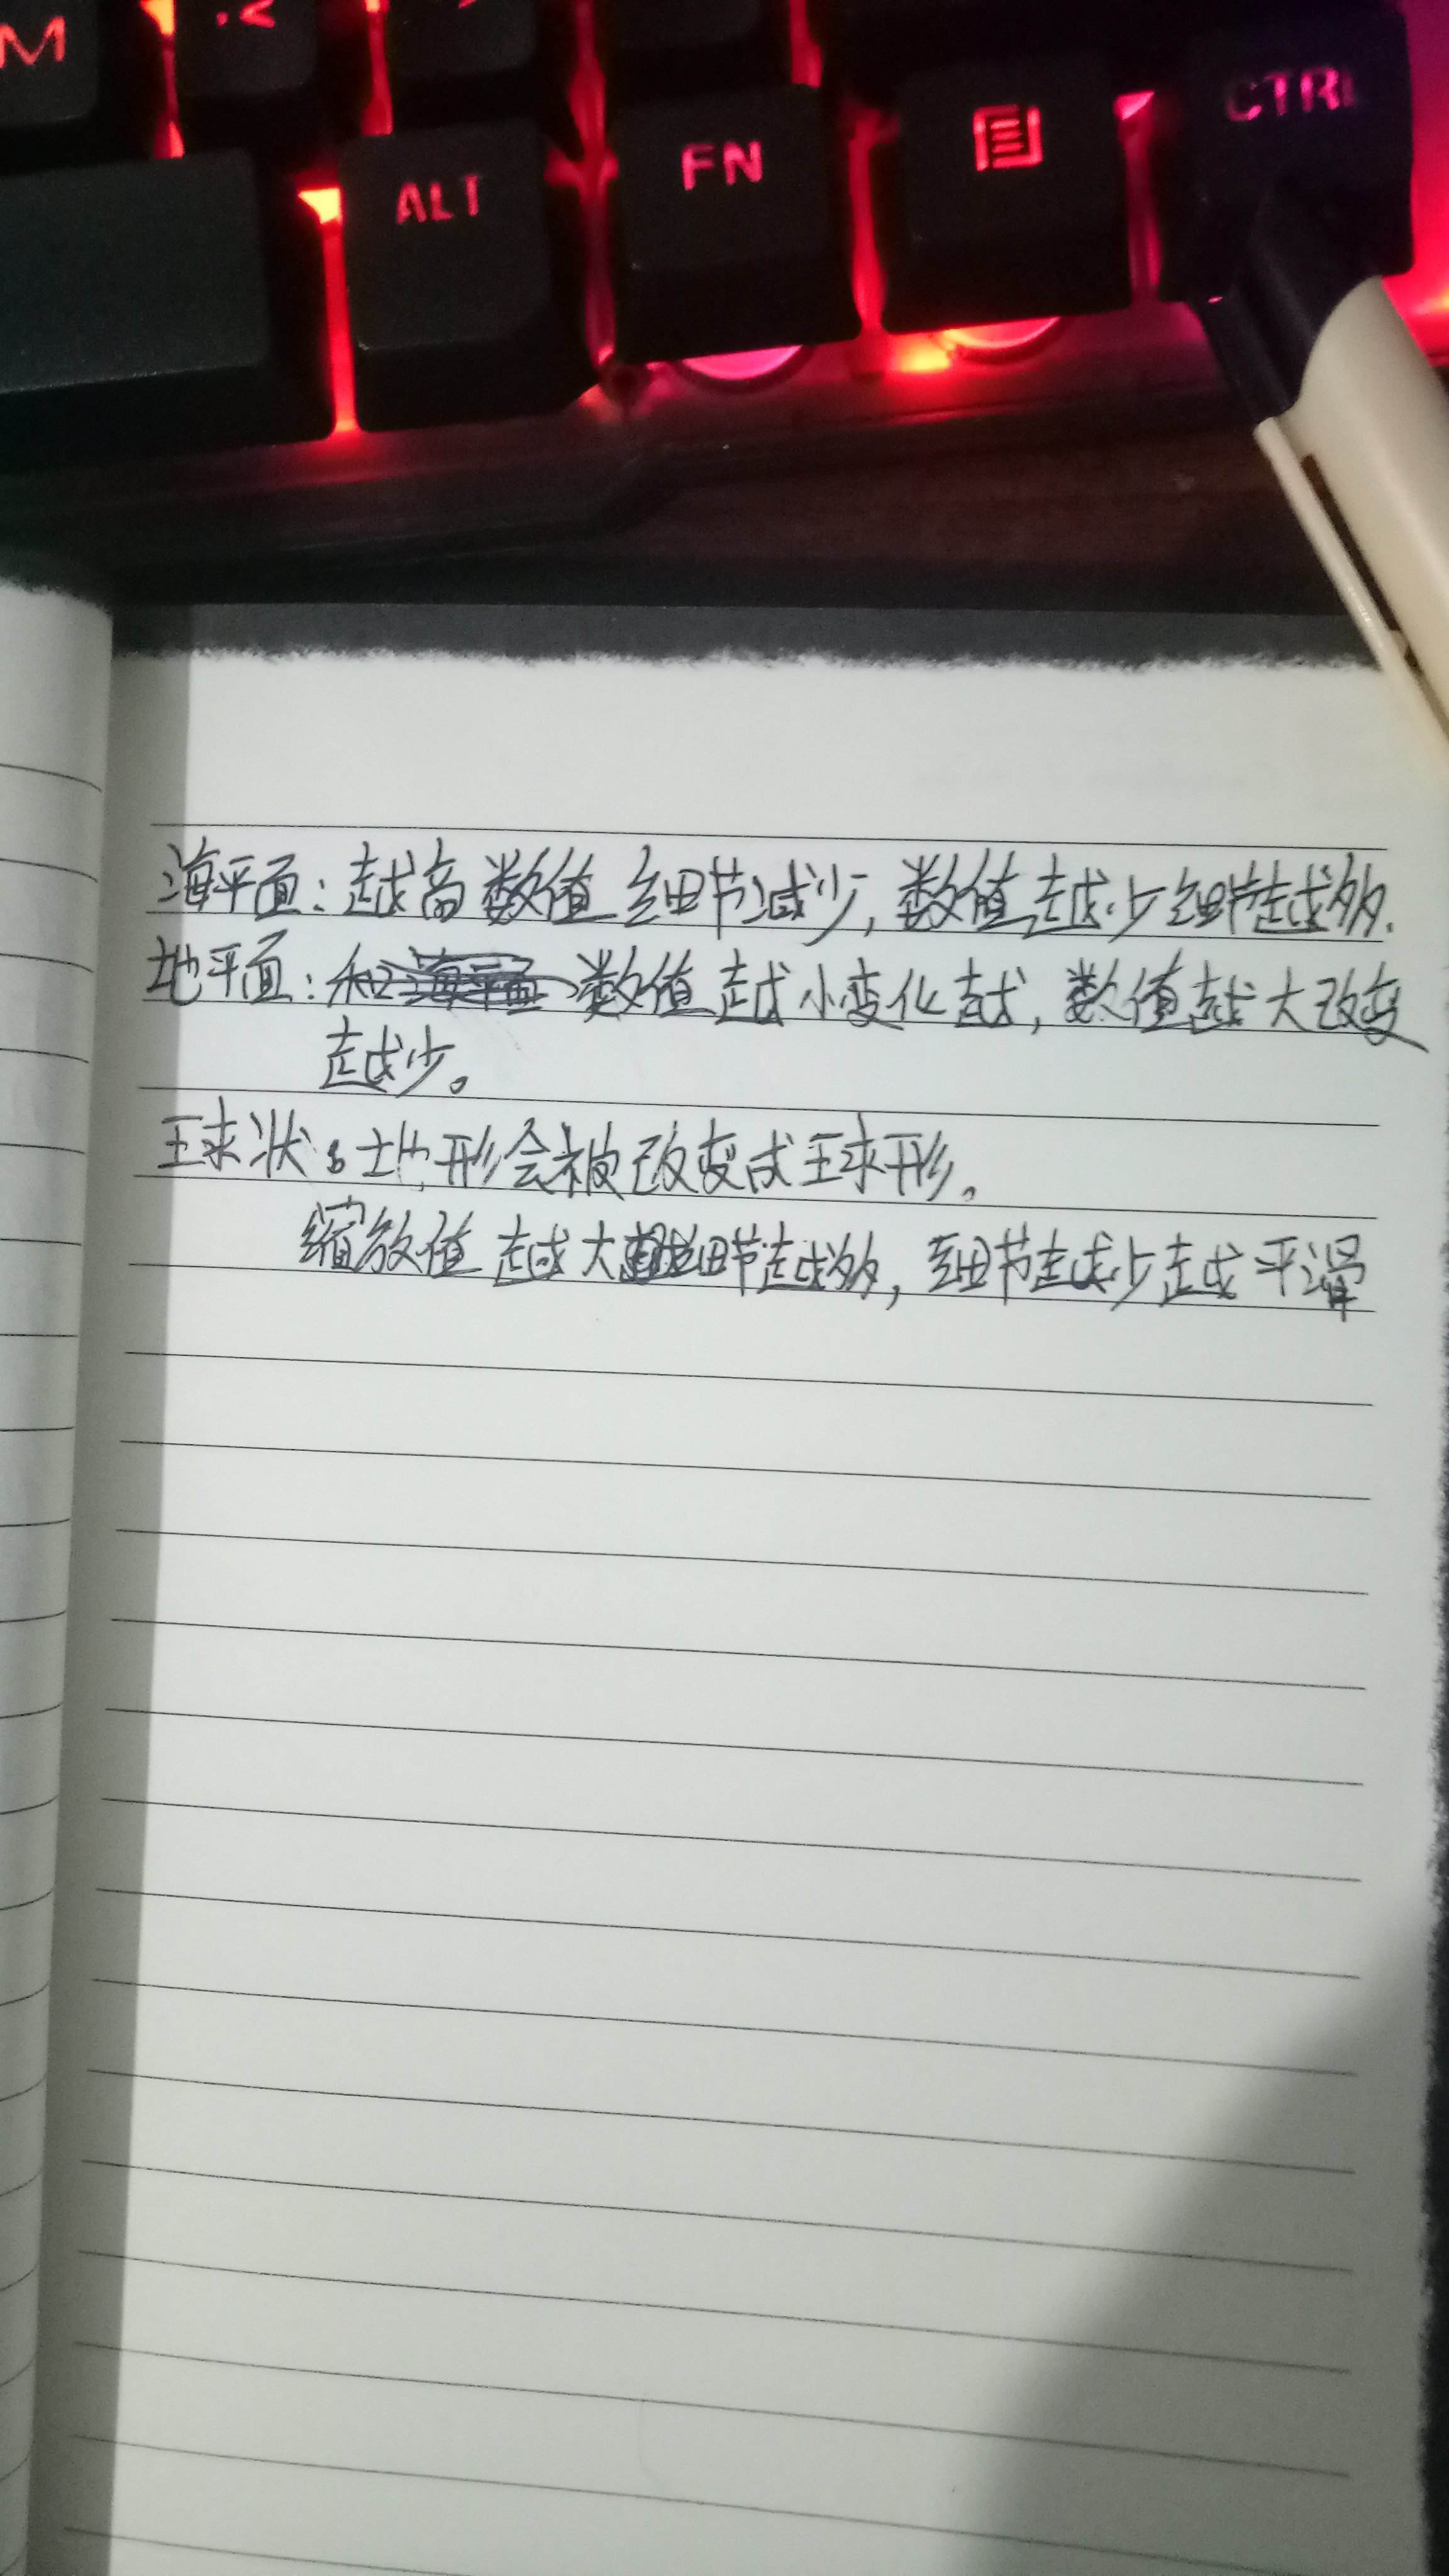 M
ALT
FN
CTRL
海平面：越高数值细节减少，数值越少细节越多.
地平面：和 数值越小变化越，数值越大改变
越少。
球状：地形会被改变成球形。
缩放值越大细节越多，细节越少越平滑